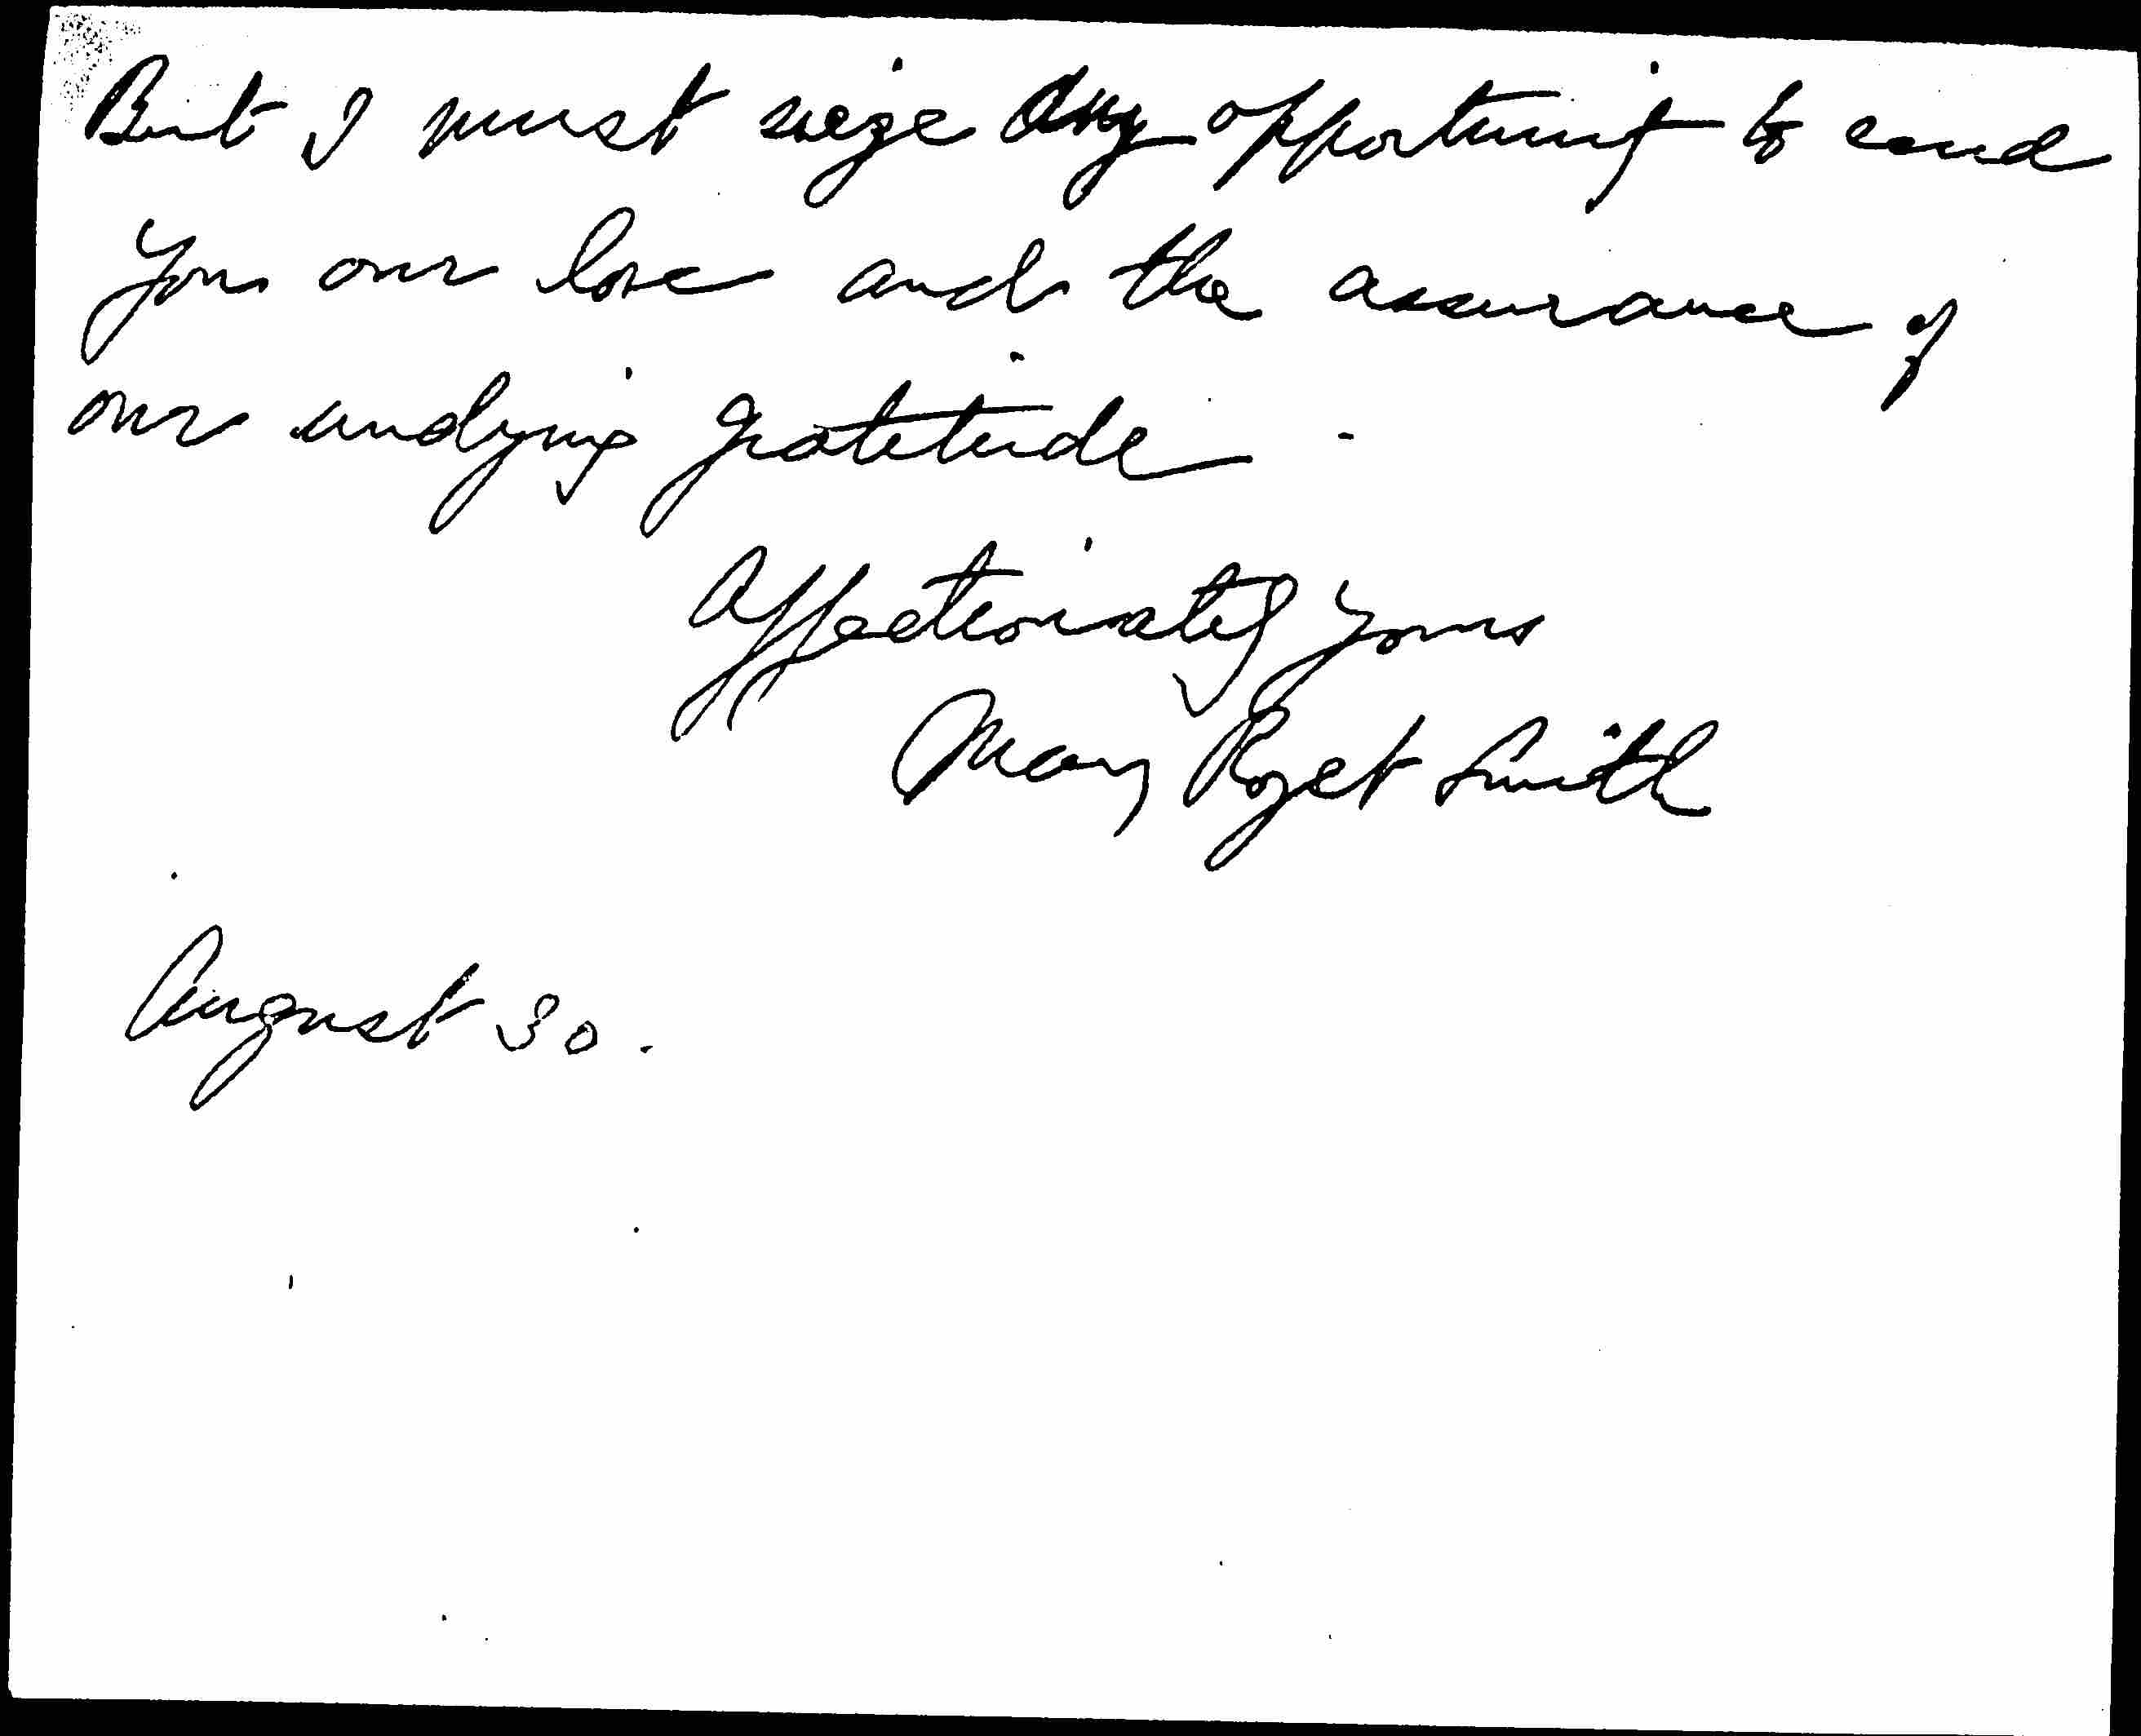 But I must seize any opportunity to send
you our love and the assurance of
our undying gratitude -
Affectionately yours
Mary Rozet Smith
August 30.